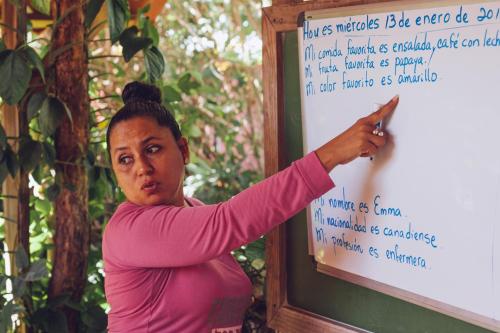 Hou es miércoles 13 de enero de 20
Mi comida favorita es ensalada, café con lech
Mi fruta favorita es papaya.
Mi color favorito es amarillo.
Mi nombre es Emma.
Mi nacionalidad es canadiense.
Mi profesión es enfermera.